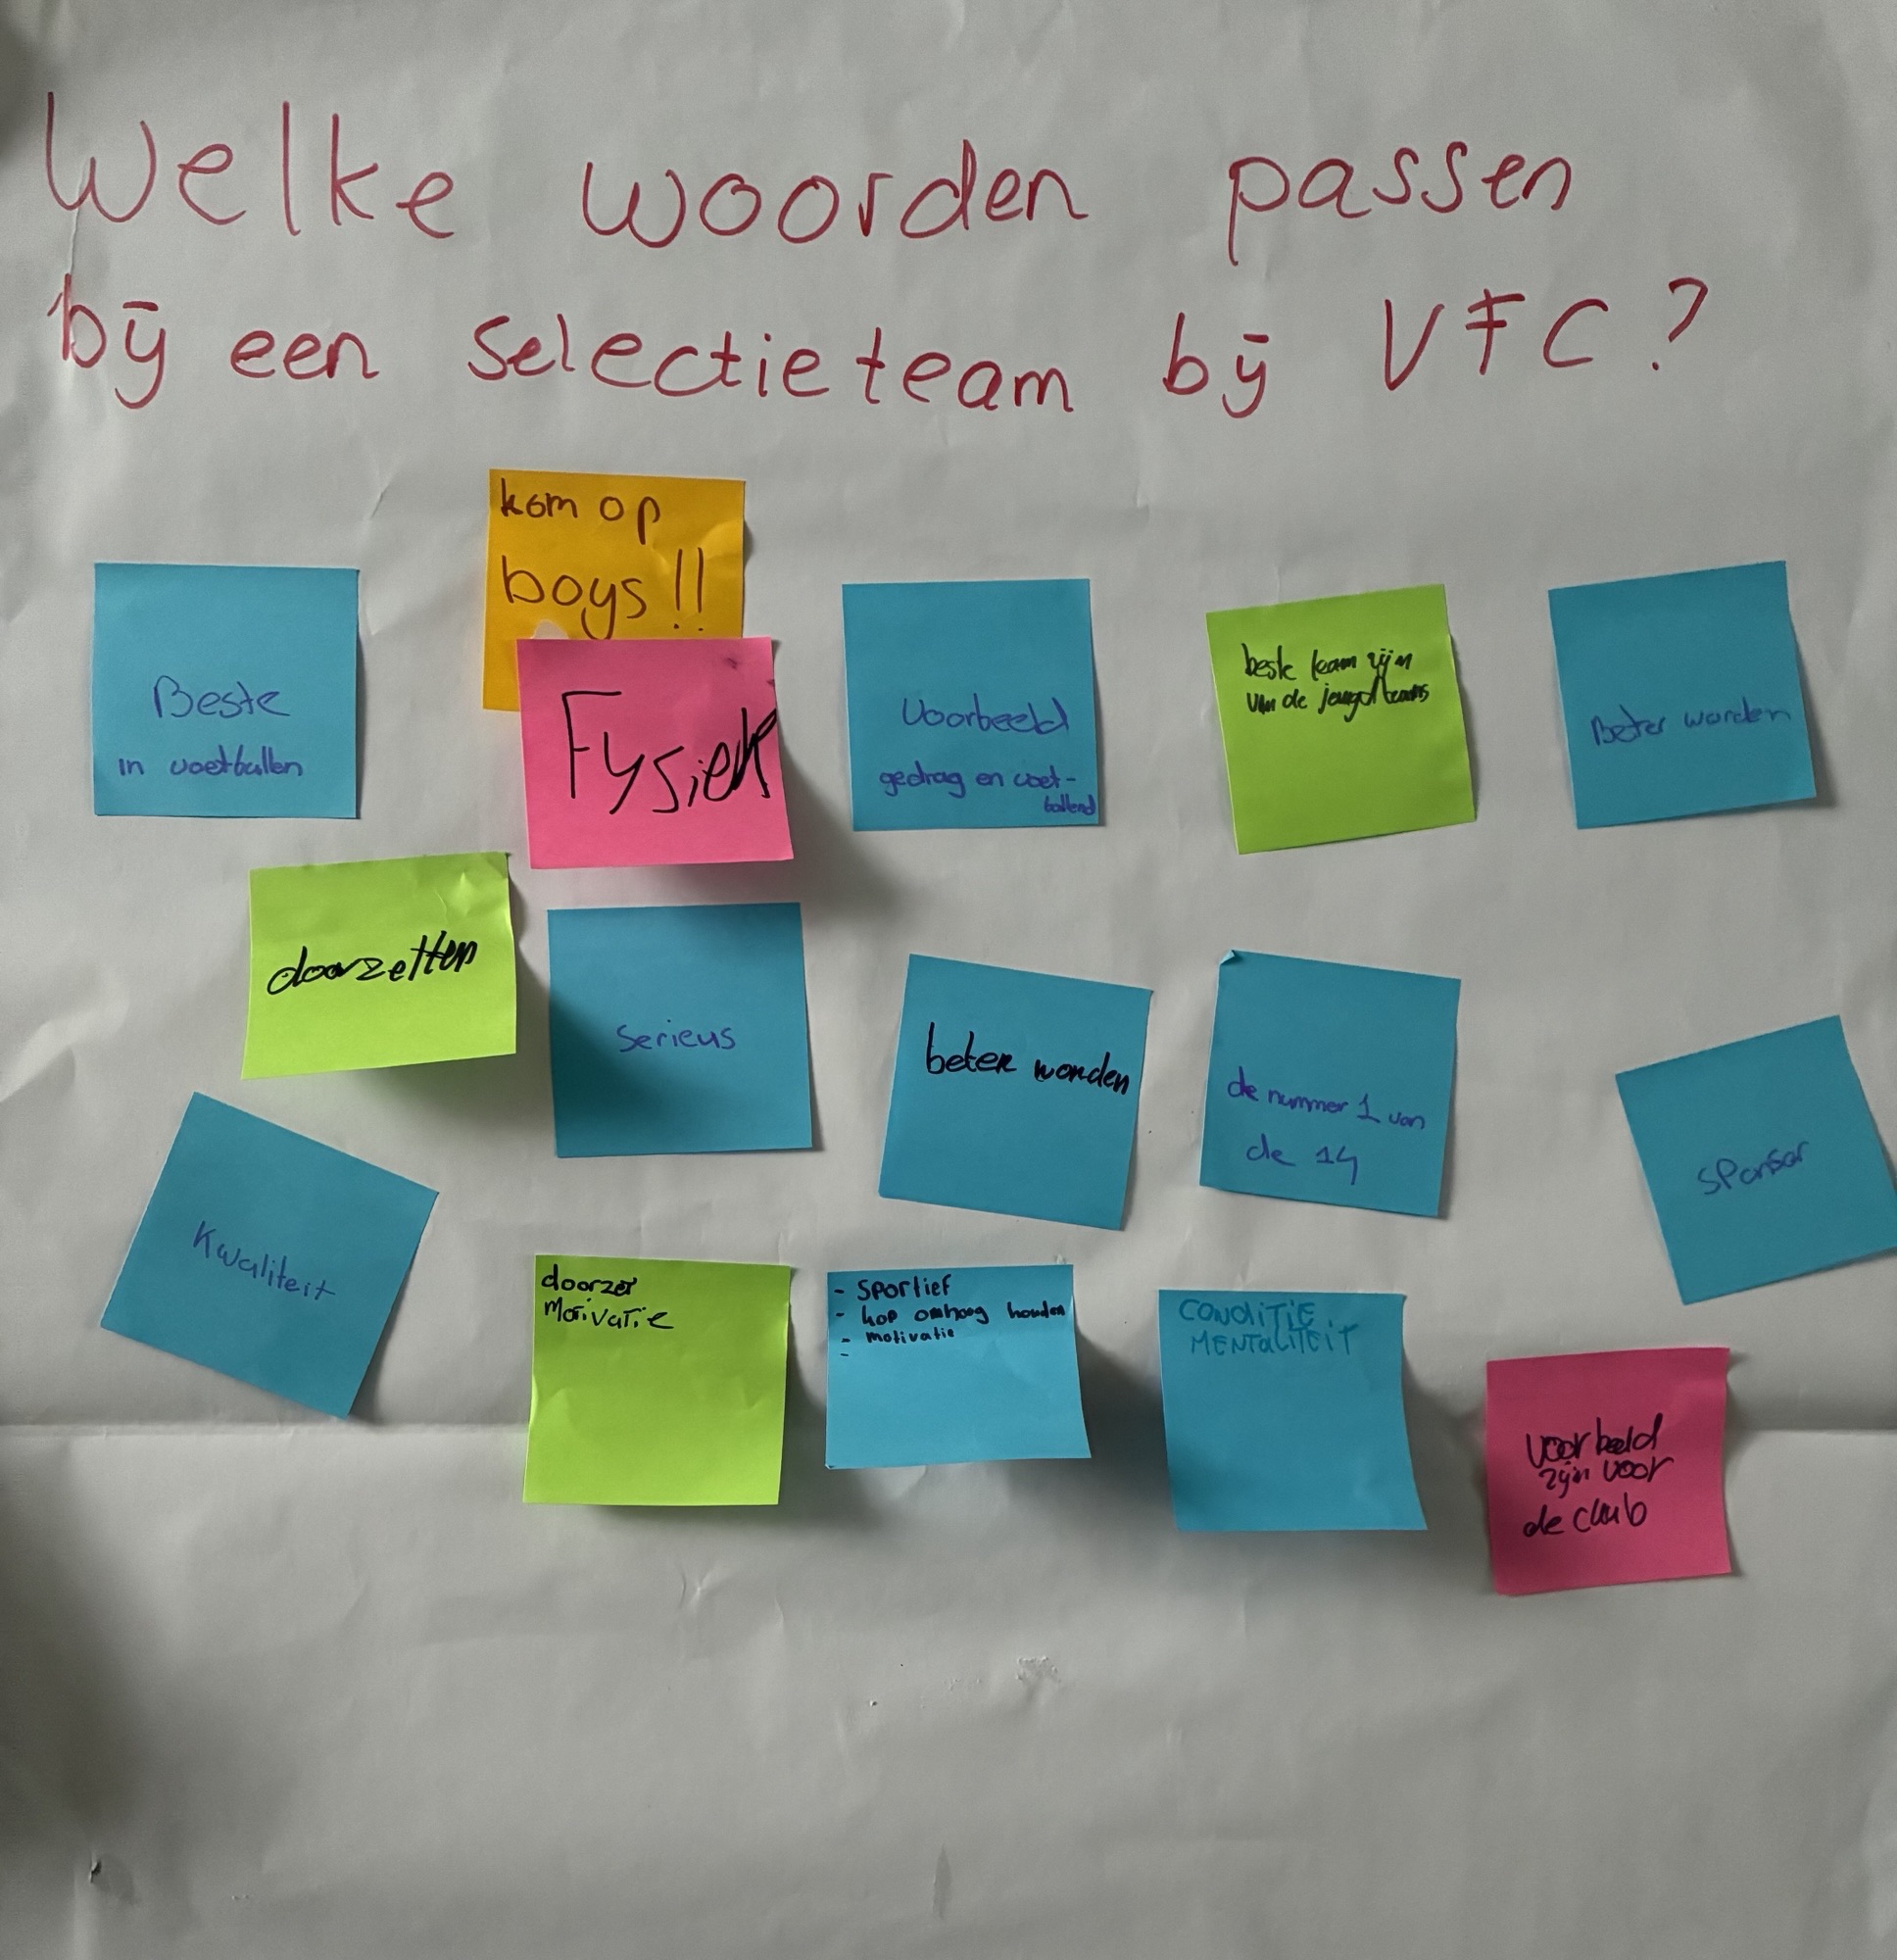 Welke woorden passen
bij een selectieteam bij VFC?
kom op
boys!!
Beste
in voetballen
Fysiek
Voorbeeld
gedrag en voet-
ballend
beste team zijn
van de jeugdteams
Beter worden
doorzetten
serieus
beter worden
de nummer 1 van
de 14
sponsor
Kwaliteit
doorzet
Motivatie
- sportief
- kop omhoog houden
- motivatie
-
CONDITIE
MENTALITEIT
voorbeeld
zijn voor
de club